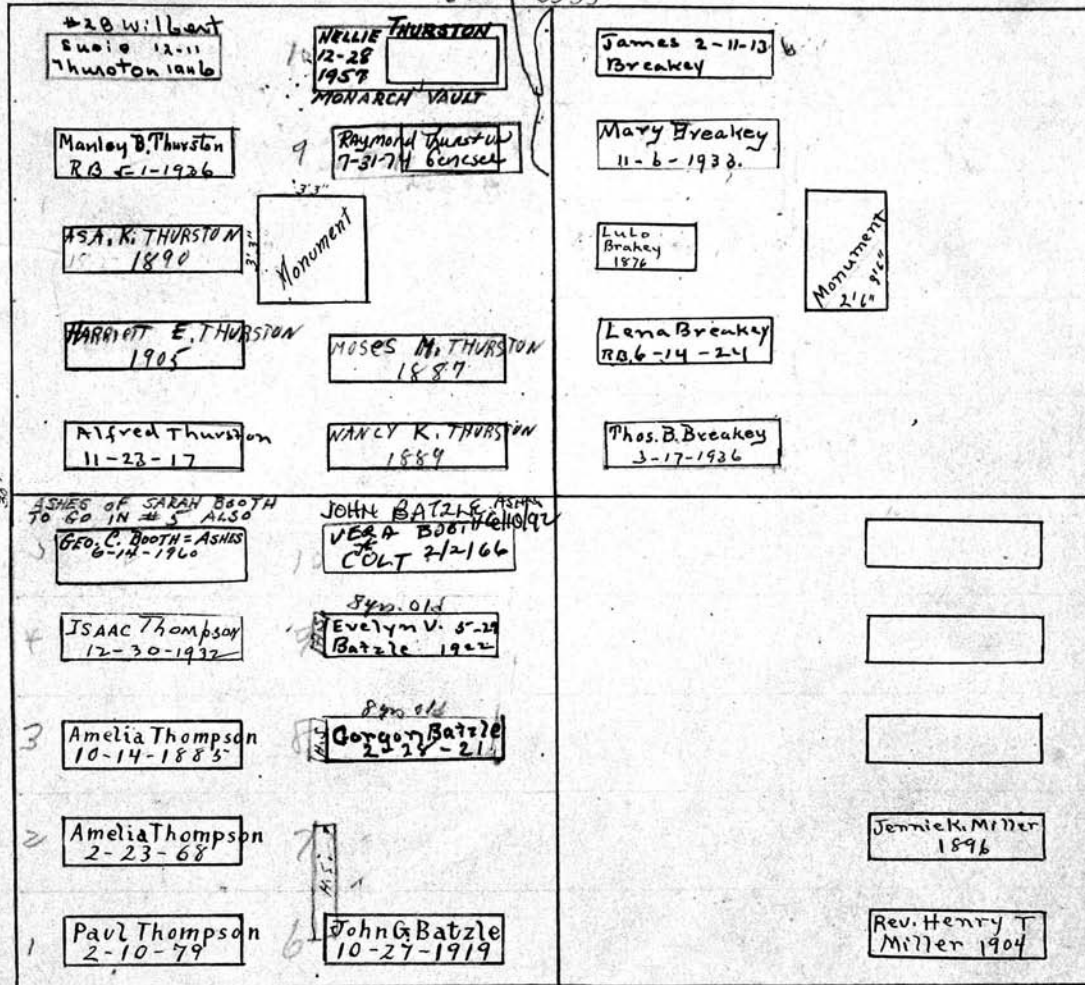 #28 Wilbert
Susie 12-11
Thurston 1946
Manley B. Thurston
RB 5-1-1936
ASA. K. THURSTON
1890
HARRIETT E. THURSTON
1905
Alfred Thurston
11-23-17
THURSTON
NELLIE
12-28
1957
MONARCH VAULT
9
Raymond Thurston
7-31-74 Genesee
3'3"
3'3"
Monument
MOSES M. THURSTON
1887
NANCY K. THURSTON
1889
James 2-11-13
Breakey
Mary Breakey
11-6-1933.
Lulo
Brakey
1876
Monument
2'6"
Lena Breakey
RB. 6-14-24
Thos. B. Breakey
3-17-1936
ASHES OF SARAH BOOTH
TO GO IN #5 ALSO
5
GEO. C. BOOTH = ASHES
6-14-1960
4
ISAAC Thompson
12-30-1932
3
Amelia Thompson
10-14-1885
2
Amelia Thompson
2-23-68
1
Paul Thompson
2-10-79
JOHN BATZLE ASHES
10
VERA BOOTH
COLT 2/2/66
8 yrs. old
Evelyn V. 5-29
Batzle 1922
8 yrs old
8
H.S.
Gorgon Batzle
2-28-21
7
H.S.
6
John G Batzle
10-27-1919
Jennie K. Miller
1896
Rev. Henry T
Miller 1904